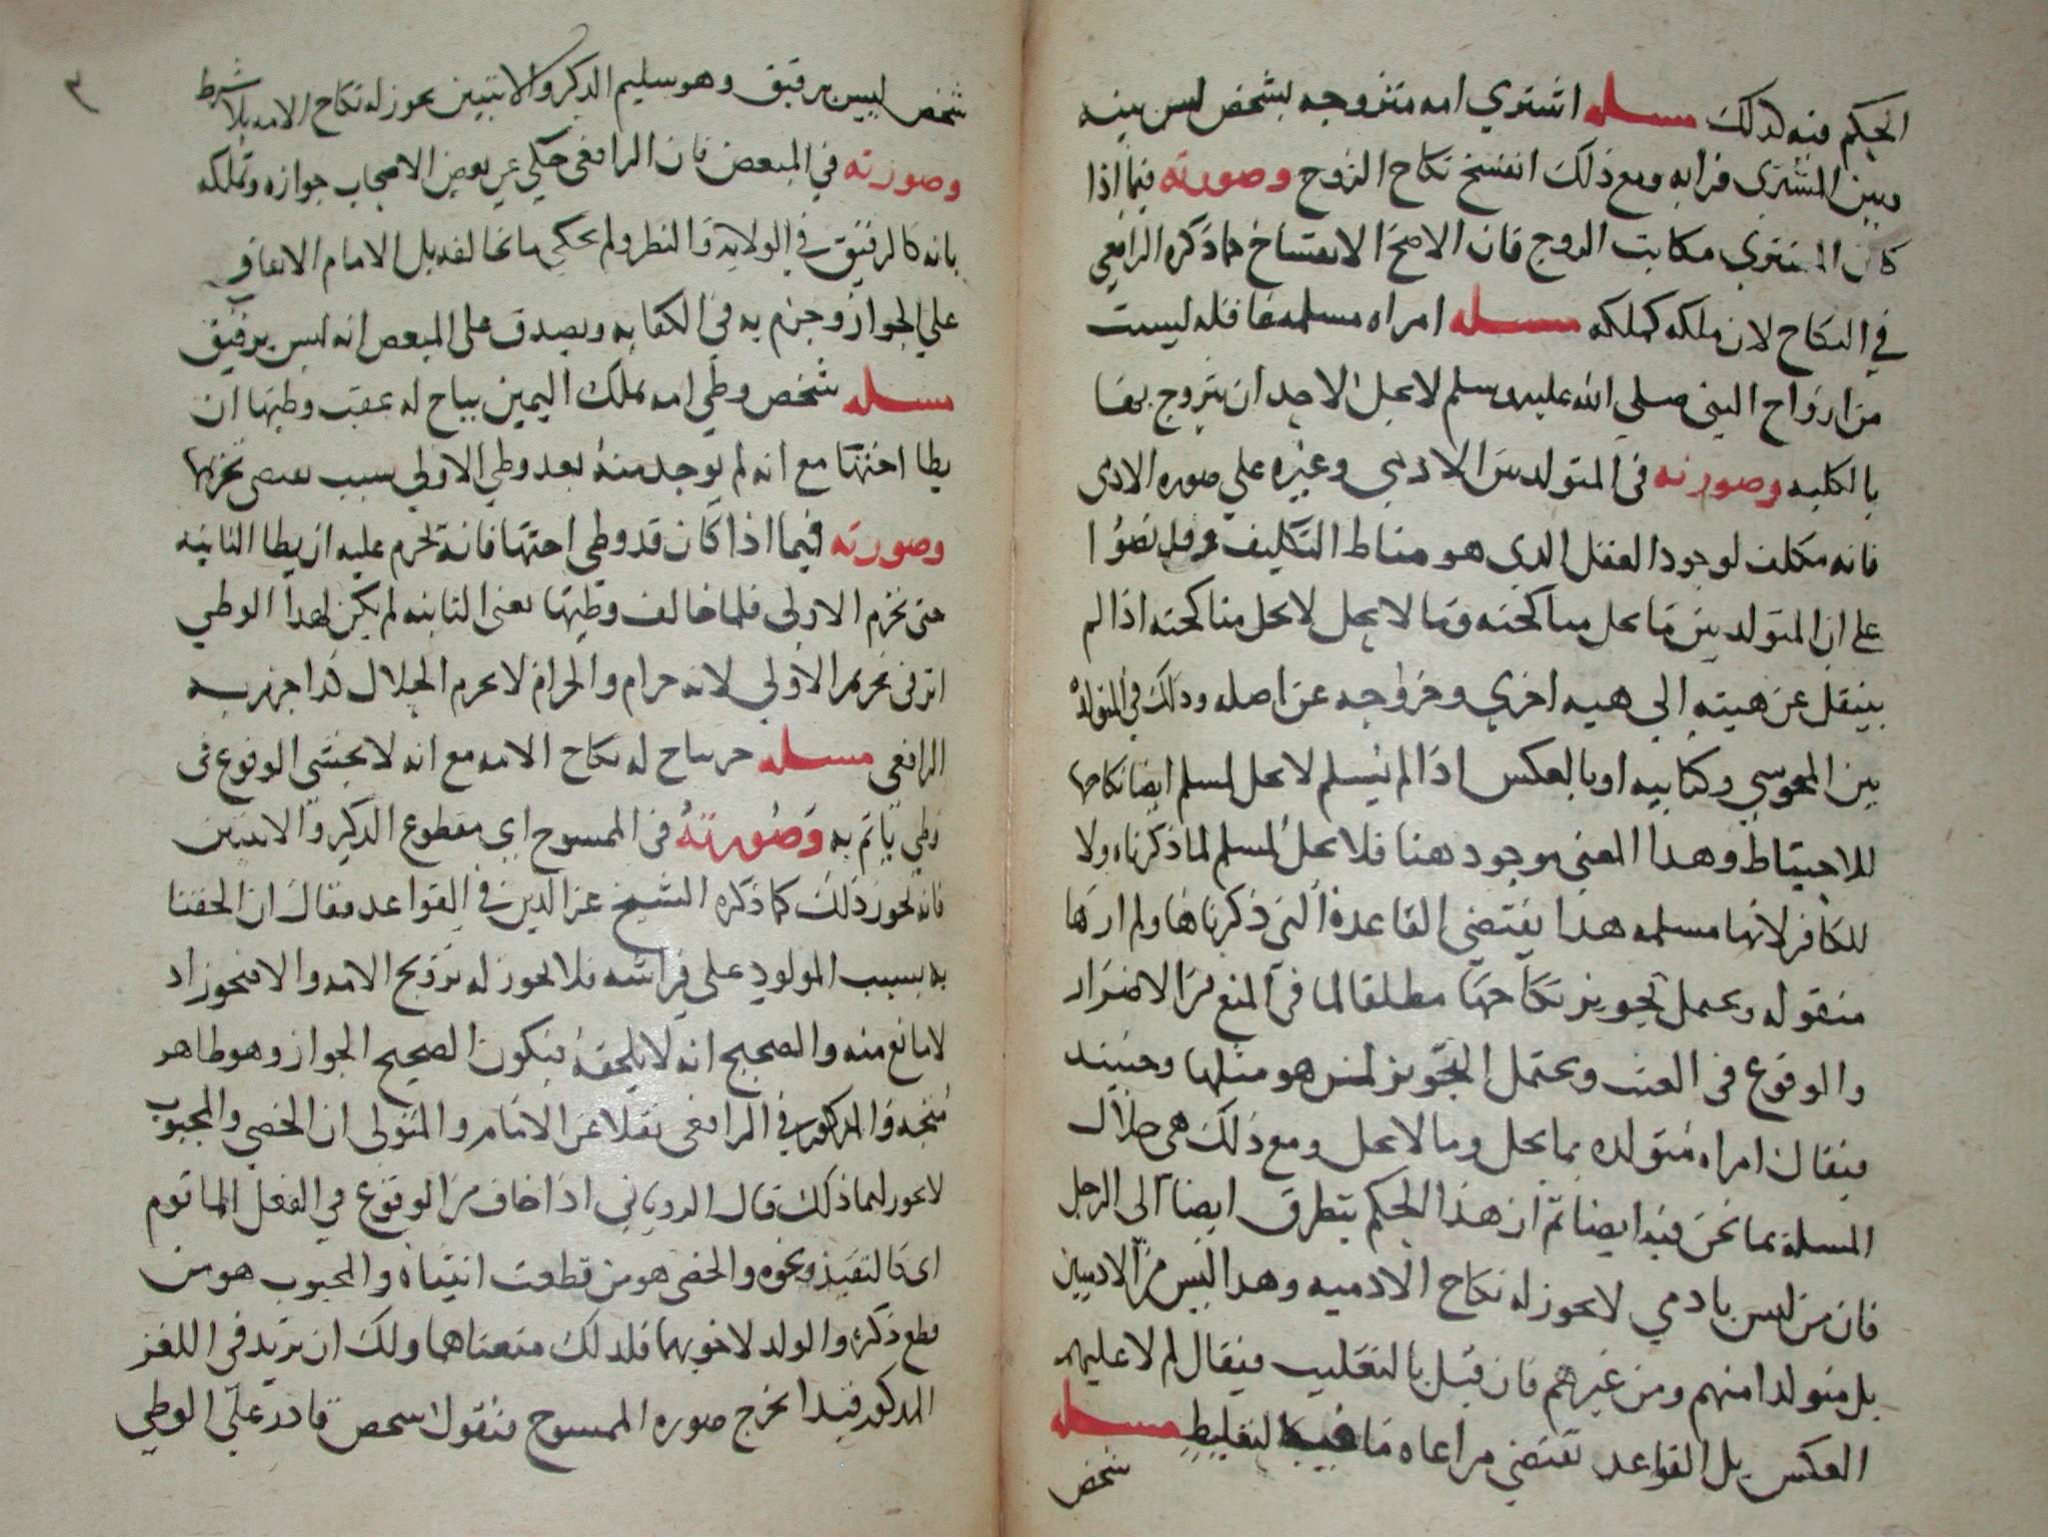 الحكم فيه كذلك مسله اشتري امه متزوجه بشخص ليس بينه
وبين المشتري قرابه ومع ذلك انفسخ نكاح الزوج وصورته فيما اذا
كان المشتري مكاتب الزوج فان الاصح الانفساخ كما ذكره الرافعي
في النكاح لان ملكه كملكه مسله امراه مسلمه عاقله ليست
من ازواج النبي صلي الله عليه وسلم لا يحل لاحد ان يتزوج بها
بالكليه وصورته في المتولد بين الادمي وغيره علي صوره الادمي
فانه مكلف لوجود العقل الذي هو مناط التكليف وقد نصوا
علي ان المتولد بين ما يحل مناكحته وما لا يحل لا يحل مناكحته اذا لم
ينتقل عن هيته الي هيه اخري وخروجه عن اصله وذلك في المتولده
بين المجوسي وكتابيه او بالعكس اذا لم يسلم لا يحل لمسلم ايضا نكاحها
للاحتياط وهذا المعني موجود هنا فلا يحل لمسلم لما ذكرناه ولا
للكافر لانها مسلمه هذا يقتضي القاعدة التي ذكرناها ولم ارها
منقوله ويحتمل تجويز نكاحها مطلقا لما في المنع من الاضرار
والوقوع في العنت ويحتمل التجويز لمن هو مثلها وحينيد
فيقال امراه متولده مما يحل وما لا يحل ومع ذلك هي حلال
المسله بما نحن فيه ايضا ثم ان هذا الحكم يتطرق ايضا الى الرجل
فان من ليس بادمي لا يجوز له نكاح الادميه وهدا ليس من الادميين
بل متولدا منهم ومن غيرهم فان قيل بالتغليب فيقال لم لا عليهم
العكس بل القواعد تقتضي مراعاه ما فيه التغليظ مسله
شخص
شخص ليس برقيق وهو سليم الذكر والانثيين يجوز له نكاح الامه بلا شرط
وصورته في المبعض فان الرافعي حكي عن بعض الاصحاب جوازه وتملكه
بانه كالرقيق في الولايه والنظر ولم يحكي ما يخالفه بل الامام الاتفاق
علي الجواز وجزم به في الكفايه ويصدق علي المبعض انه ليس برقيق
مسله شخص وطي امه بملك اليمين يباح له عقب وطيها ان
يطا اختها مع انه لم يوجد منه بعد وطي الاولي سبب يقتضي تحريمها
وصورته فيما اذا كان قد وطي اختها فانه تحرم عليه ان يطا الثانيه
حتى تحرم الاولى فلما خالف وطيها يعني الثانيه لم يكن لهدا الوطي
اثر في تحريم الاولي لانه حرام والحرام لا يحرم الحلال كذا جزم به
الرافعي مسله حر يباح له نكاح الامه مع انه لا يخشي الوقوع في
وطي ياثم به وصورته في الممسوح اي مقطوع الذكر والانثيين
فانه يجوز ذلك كما ذكره الشيخ عز الدين في القواعد فقال ان الحقنا
به بسبب المولود علي فراشه فلا يجوز له تزويج الامه والا فيجوز اذ
لا مانع منه والصحيح انه لا يلحقه فيكون الصحيح الجواز وهو ظاهر
متجه والمذكور في الرافعي نقلا عن الامام والمتولي ان الخصي والمجبوب
لا يجوز لهما ذلك قال الروياني اذا خاف من الوقوع في الفعل الماثوم
والخصي هو من قطعت انثياه والمجبوب هو من
قطع ذكره والولد لاحق بهما فلذلك منعناهما ولك ان تزيد في اللغز
المذكور قيدا يخرج صوره الممسوح فتقول شخص قادر علي الوطي
٣